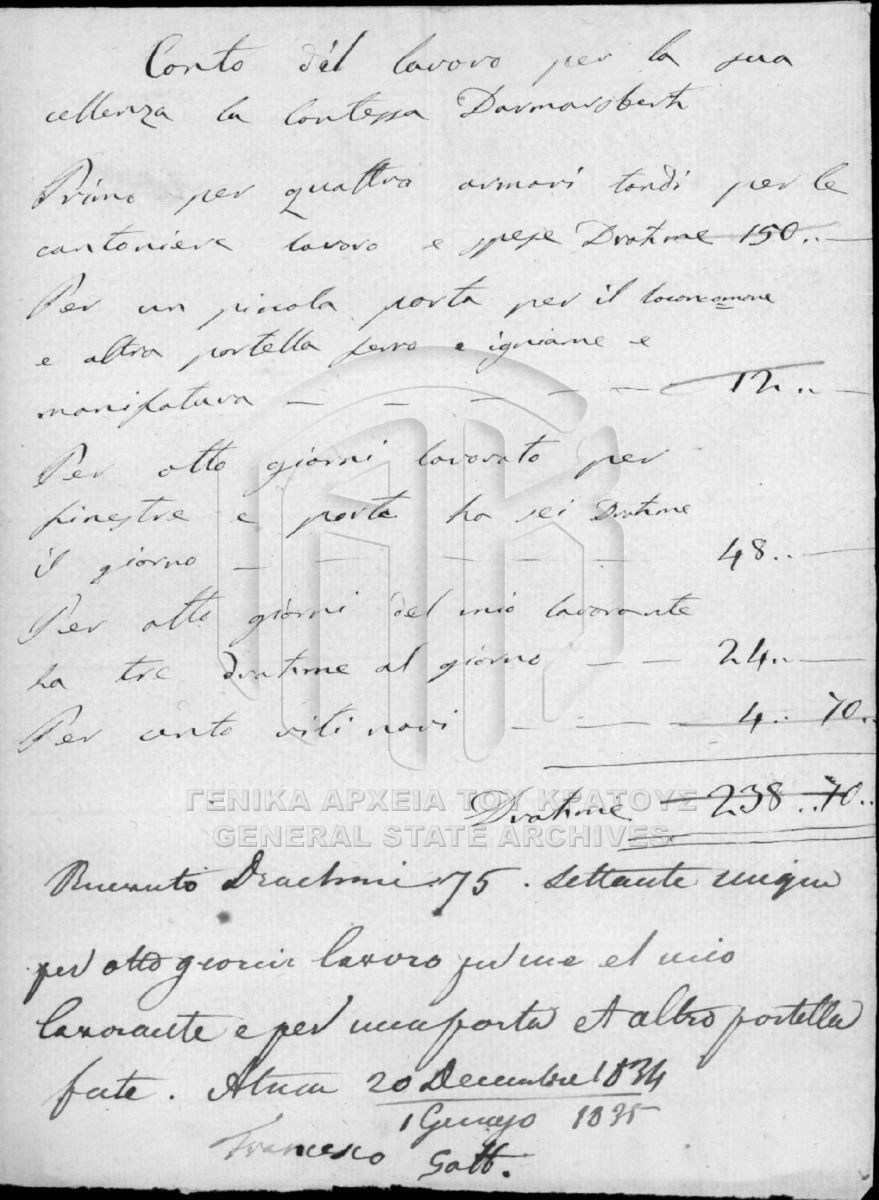 Conto dèl lavoro per la sua
cellenza la Contessa Darmansberh
Primo per quattro armari tondi per le
cantoniere lavoro e spese Drahme 150..
Per un picola porta per il
e altra portella ferro e igniame e
manifatura — — — — — 12..
Per otto giorni lavorato per
finestre e porte ha sei Drahme
il giorno — — — — — 48..
Per otto giorni del mio lavorante
ha tre drahme al giorno — — 24..
Per cento viti novi — — — 4.. 70..
Drahme 238..70..
ΓΕΝΙΚΑ ΑΡΧΕΙΑ ΤΟΥ ΚΡΑΤΟΥΣ
GENERAL STATE ARCHIVES
Drachmi 75. settante
per otto giorni lavoro per me et mio
lavorante e per una porta et altro portella
fate. 20 Decembre 1834
1 1835
Francesco Gatt.